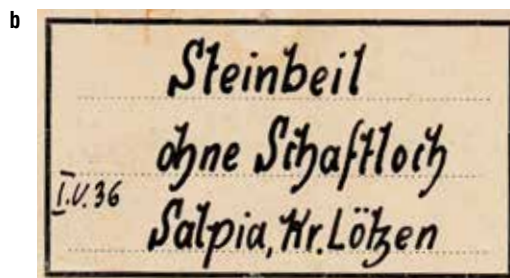 b
Steinbeil
ohne Schaftloch
I.V.36
Salpia, Kr. Lötzen